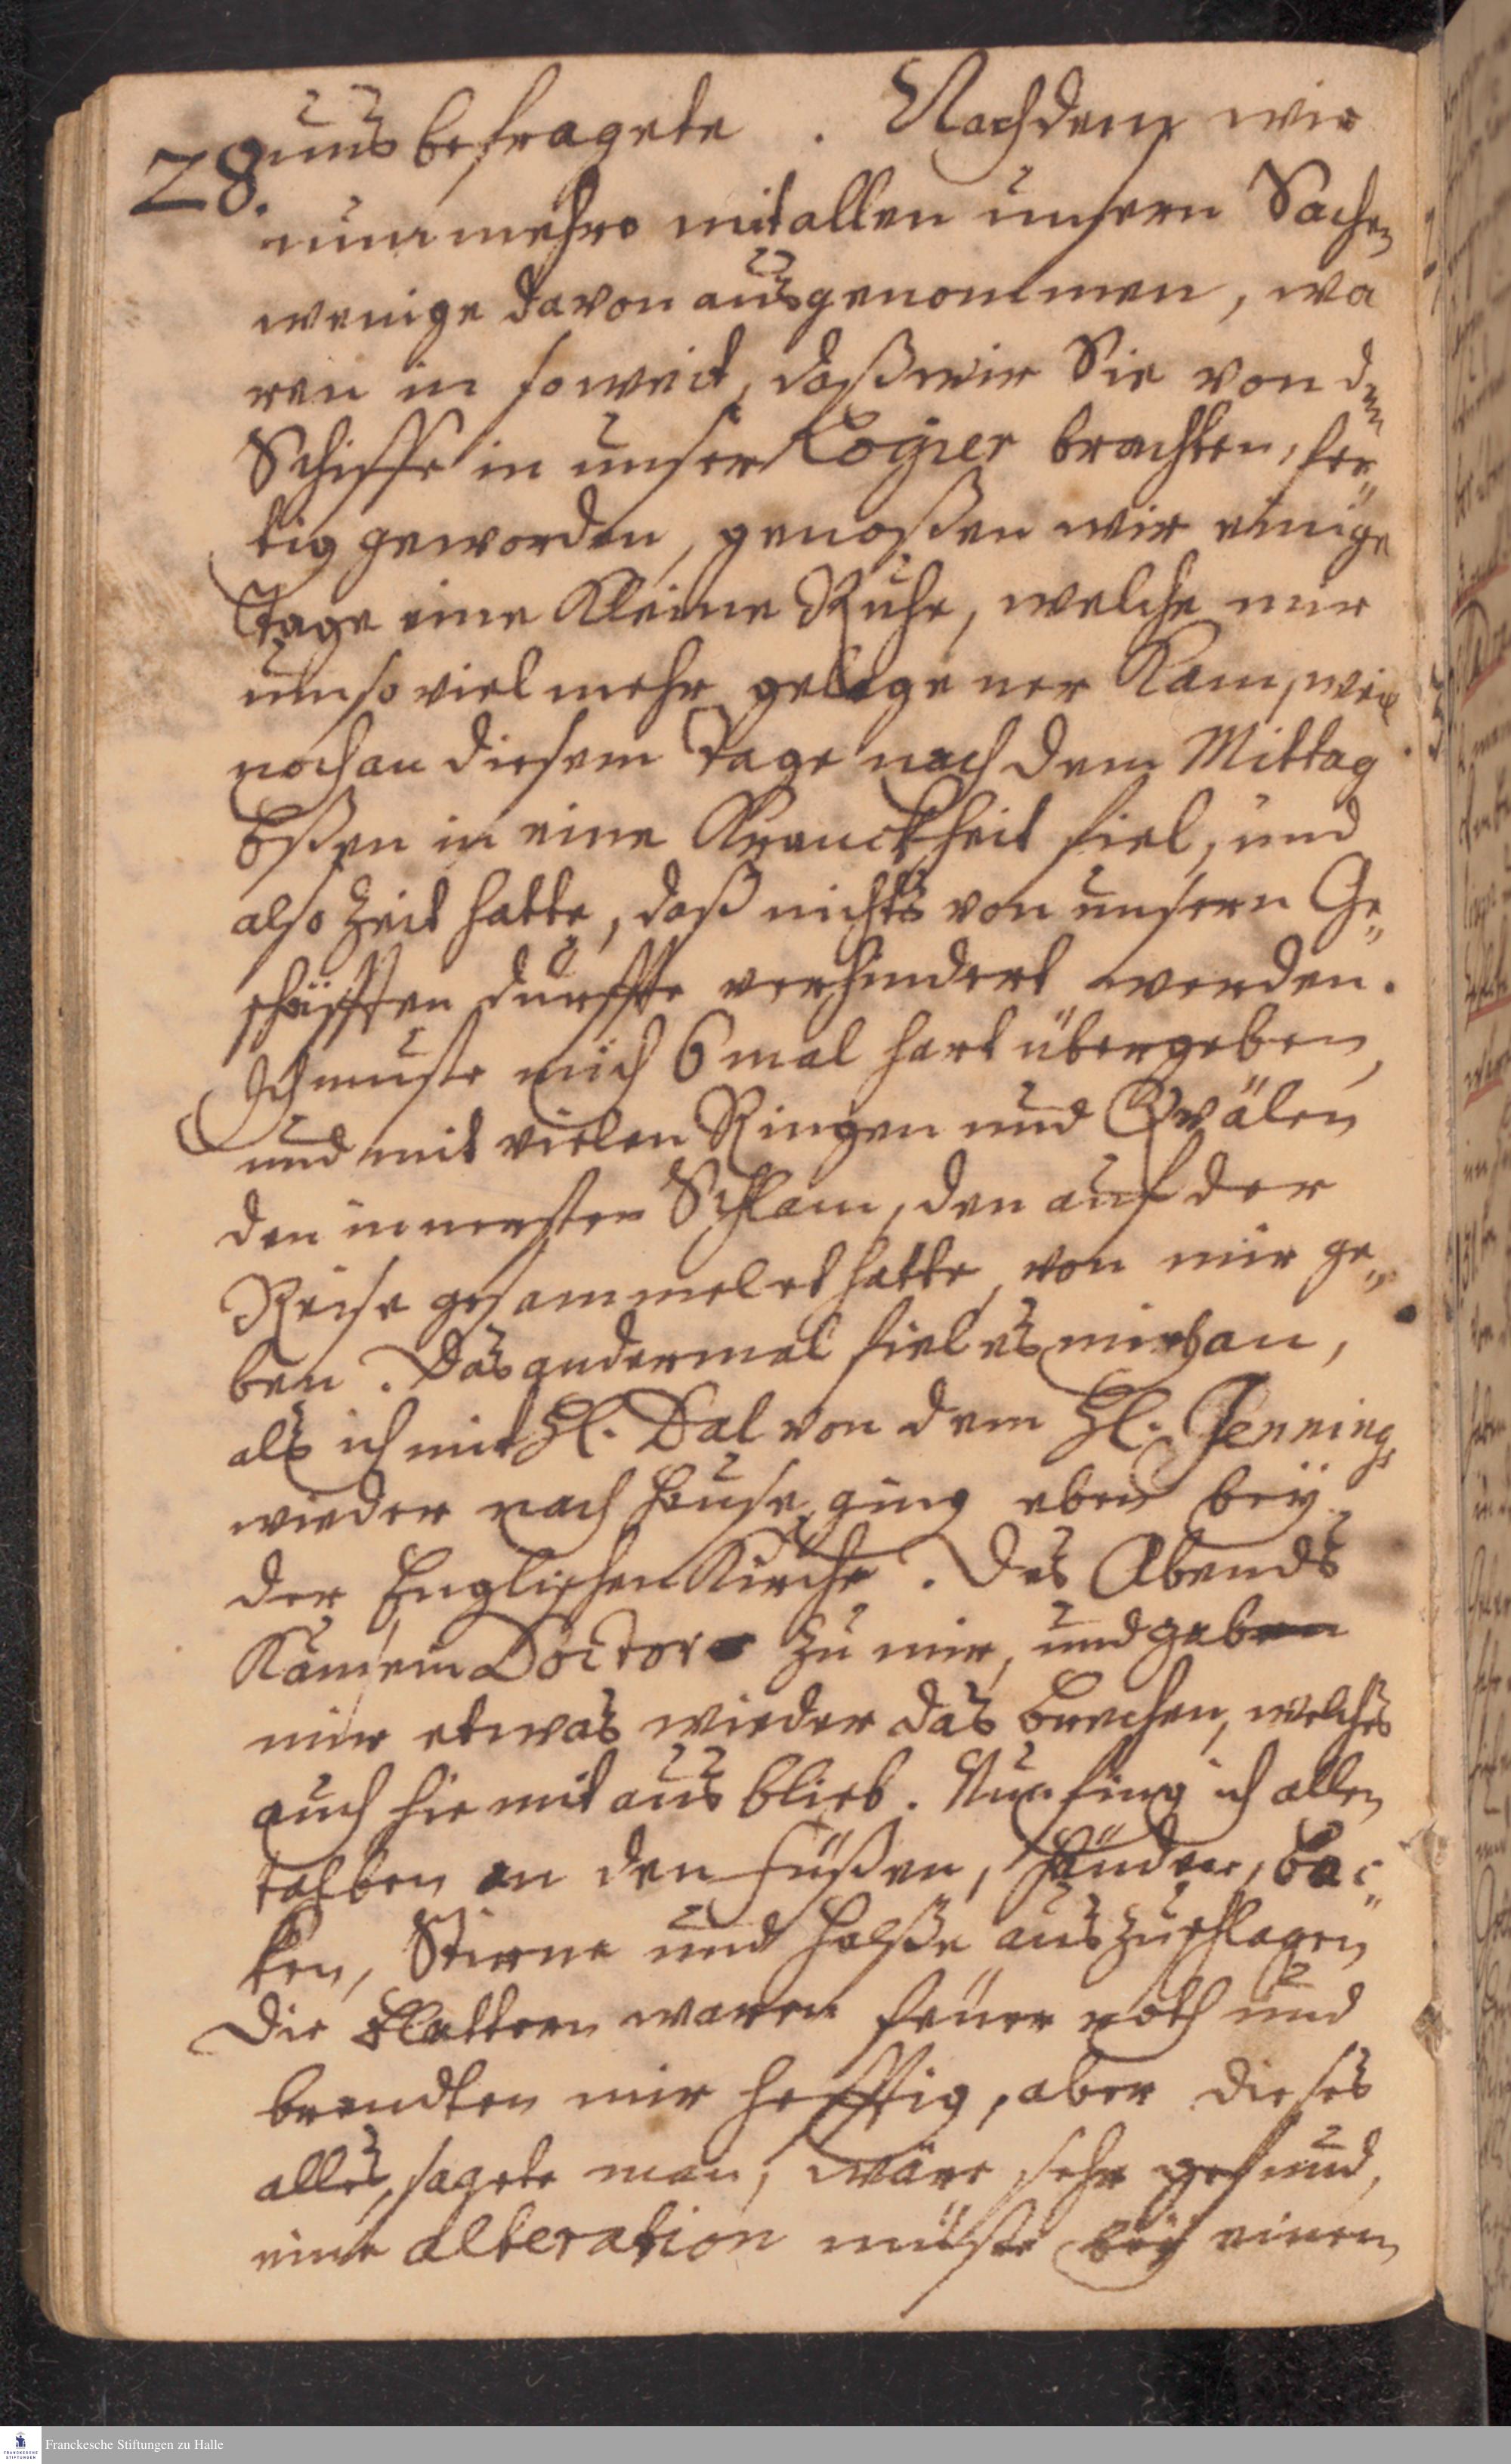 uns befragete. Nachdem wir
28.
nunmehro mit allen unsern Sachen
wenige davon ausgenommen, wa
ren in soweit, daß wir Sie von dem
Schiffe in unser Logier brachten, fer„
tig geworden, genoßen wir einige
Tage eine Kleine Ruhe, welche mir
um so viel mehr gelegener Kam, weil
noch an diesem Tage nach dem Mittag
Eßen in eine Kranckheit fiel, und
also Zeit hatte, daß nichts von unsern Ge„
schäfften durffte verhindert werden.
Ich muste mich 6 mal hart übergeben,
und mit vielen Ringen und Qvälen
den innersten Schlam, den auf der
Reise gesammelet hatte, von mir ge„
ben. Das andermal fiel es mich an,
als ich mit H. Dal von dem H. Jennings
wieder nach Hause ging eben bey
der Englischen Kirche. Des Abends
Kam ein Doctor zu mir, und gab
mir etwas wieder das Brechen, welches
auch hiemit aus blieb. Nun fing ich allen
talben an den Füßen, Händen, Bac„
ken, Stirne und Halße auszuschlagen
Die Blattern waren feuer roth und
brandten mir hefftig, aber dieses
alles, sagete man, wäre sehr gesund,
eine alteration müste bey einem
Franckesche Stiftungen zu Halle